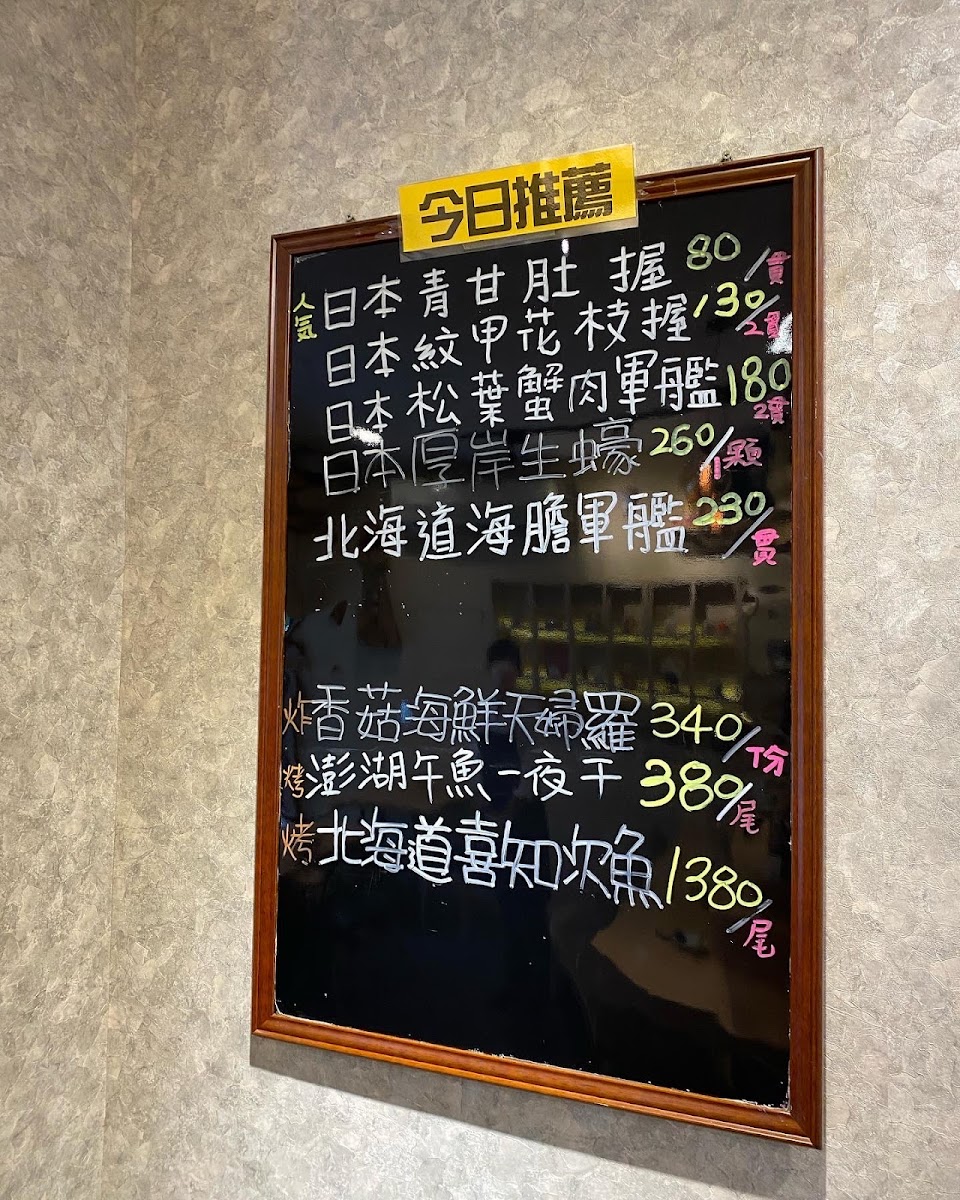 今日推薦
人気 日本青甘肚 握 80/貫
日本紋甲花枝握 130/2貫
日本松葉蟹肉軍艦 180 2貫
日本厚岸生蠔 260/1顆
北海道海膽軍艦 230/貫
炸香菇海鮮天婦羅 340/份
烤澎湖午魚一夜干 380/尾
烤北海道喜知次魚 1380/尾